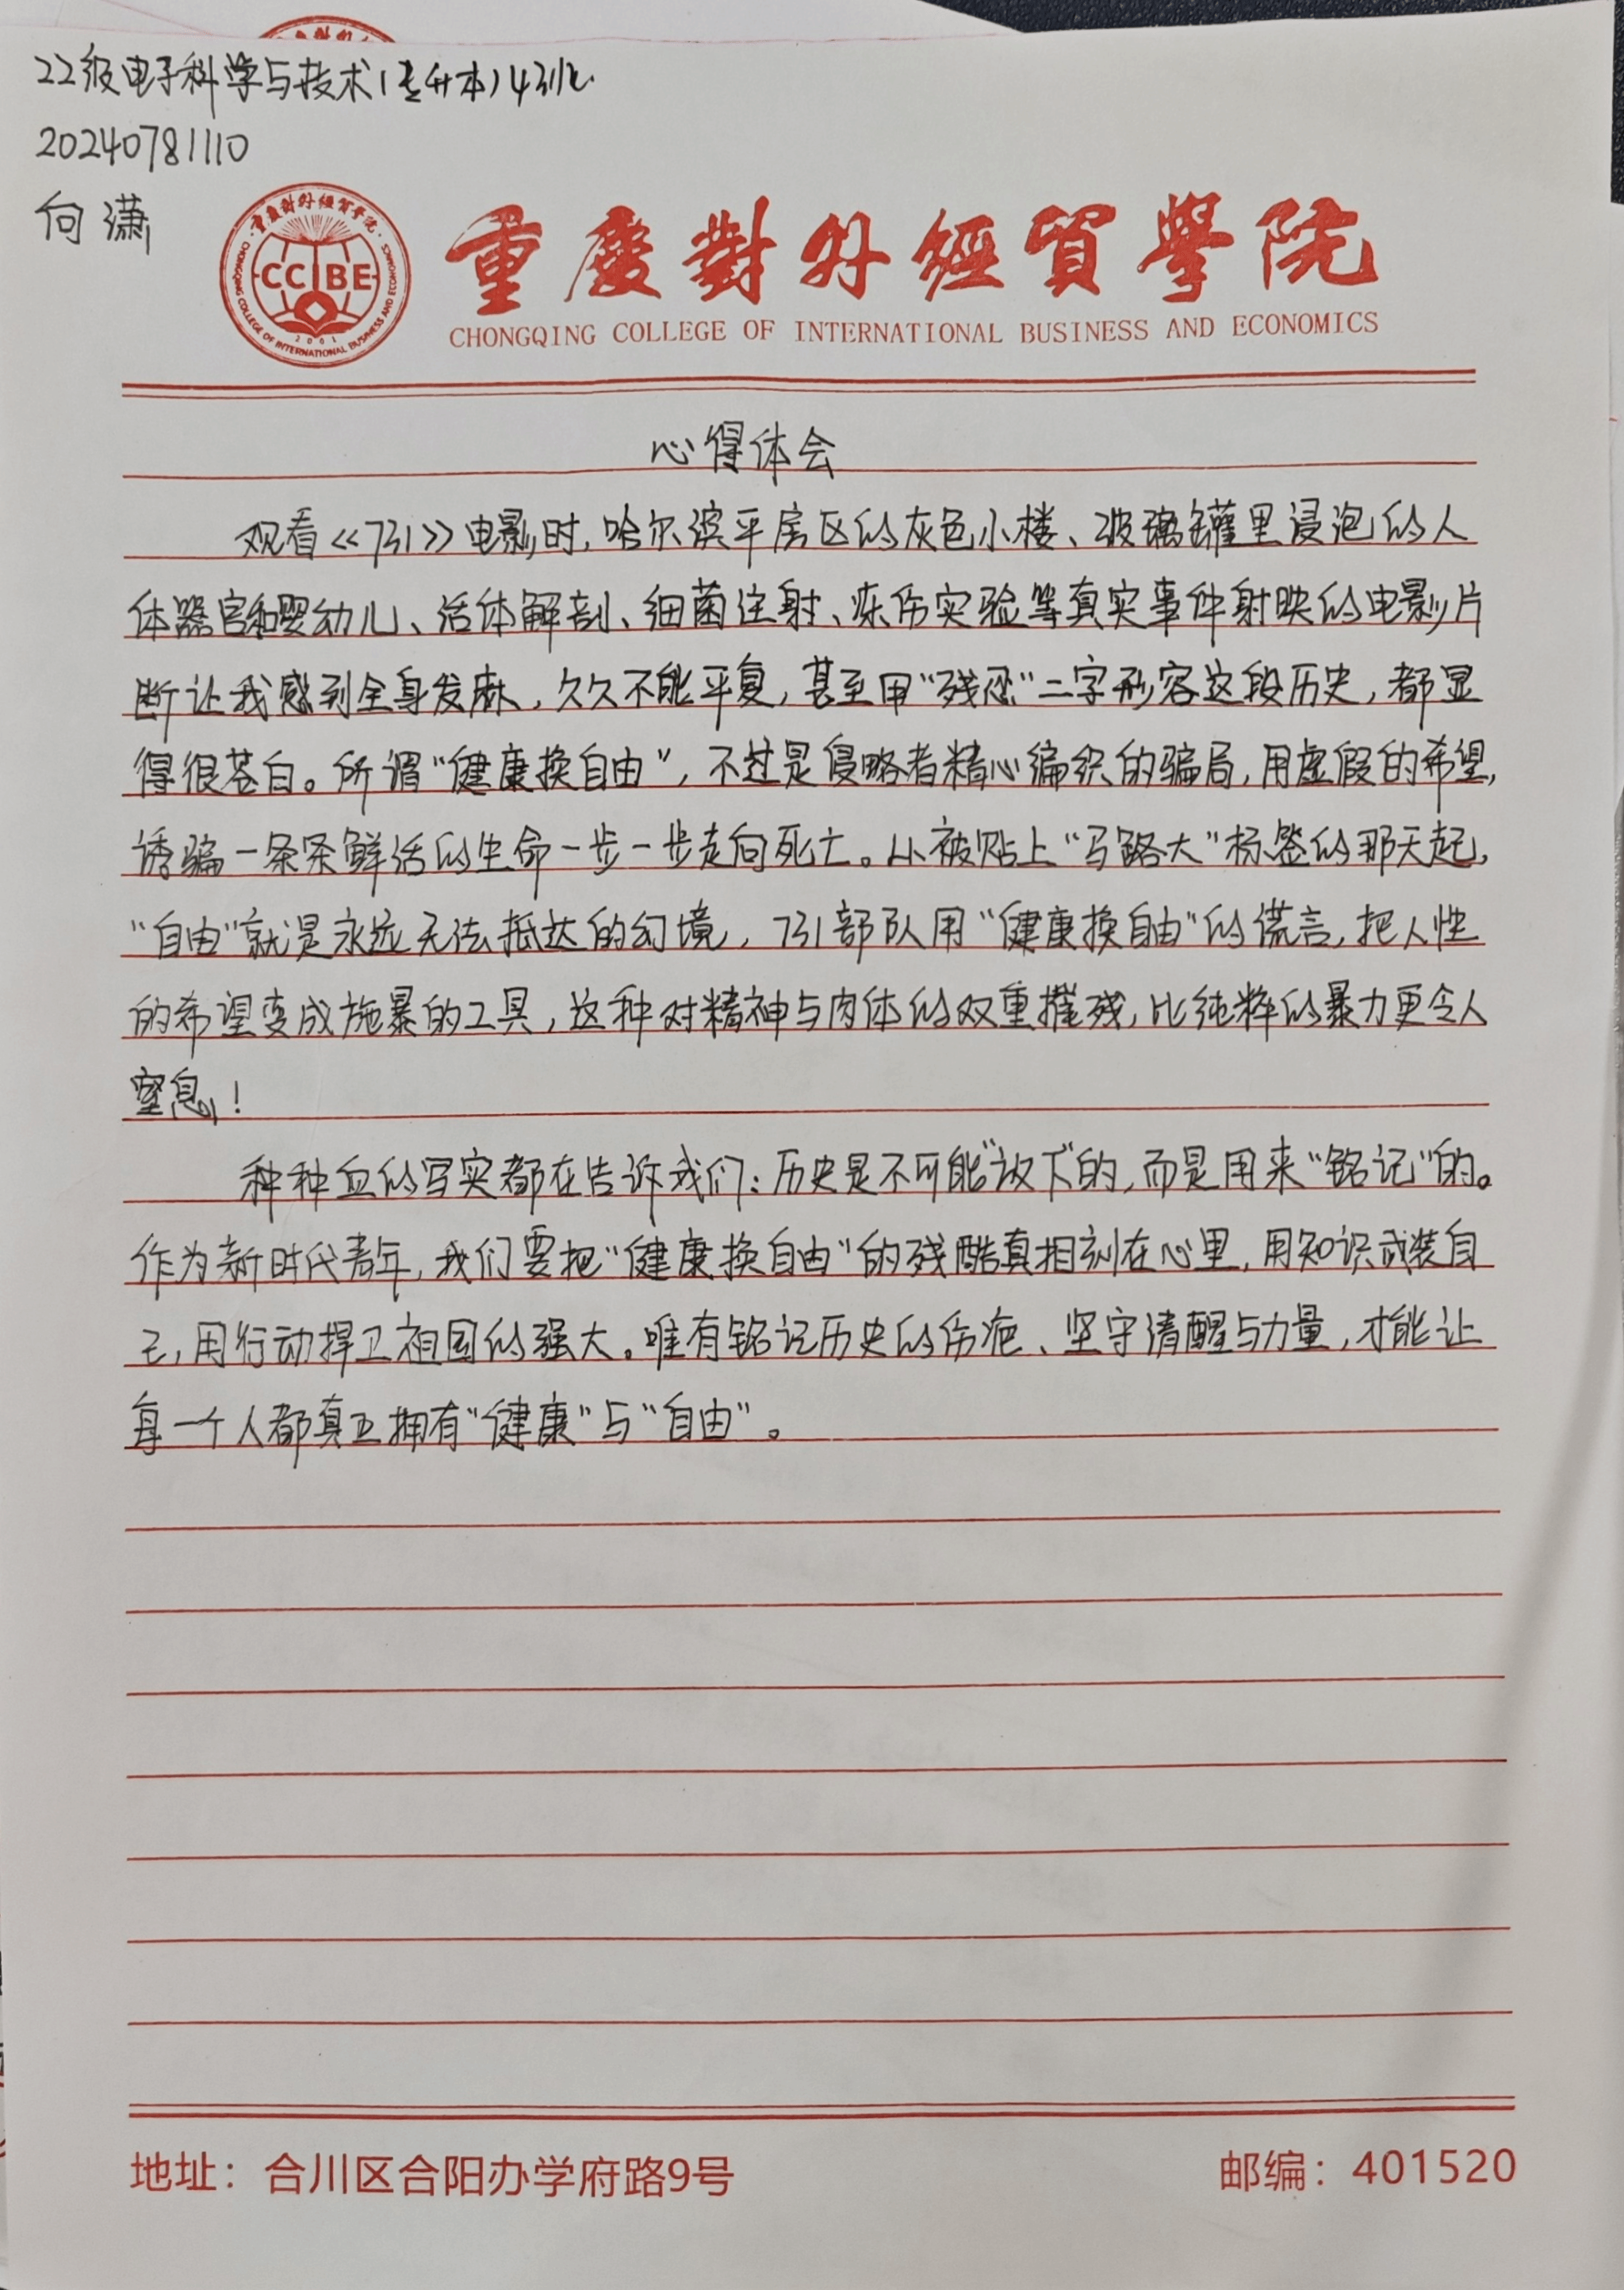 22级电子科学与技术(专升本)4班
20240781110
向潇
重慶對外經貿學院
CCIBE
CHONGQING COLLEGE OF INTERNATIONAL BUSINESS AND ECONOMICS
2001
重慶對外經貿學院
CHONGQING COLLEGE OF INTERNATIONAL BUSINESS AND ECONOMICS
心得体会
观看《731》电影时,哈尔滨平房区的灰色小楼、玻璃罐里浸泡的人
体器官和婴幼儿、活体解剖、细菌注射、冻伤实验等真实事件射映的电影片
断让我感到全身发麻,久久不能平复,甚至用“残忍”二字形容这段历史,都显
得很苍白。所谓“健康换自由”,不过是侵略者精心编织的骗局,用虚假的希望,
诱骗一条条鲜活的生命一步一步走向死亡。从被贴上“马路大”标签的那天起,
“自由”就是永远无法抵达的幻境,731部队用“健康换自由”的谎言,把人性
的希望变成施暴的工具,这种对精神与肉体的双重摧残,比纯粹的暴力更令人
窒息!
种种血的写实都在告诉我们:历史是不可能“放下”的,而是用来“铭记”的。
作为新时代青年,我们要把“健康换自由”的残酷真相刻在心里,用知识武装自
己,用行动捍卫祖国的强大。唯有铭记历史的伤疤、坚守清醒与力量,才能让
每一个人都真正拥有“健康”与“自由”。
地址：合川区合阳办学府路9号
邮编：401520